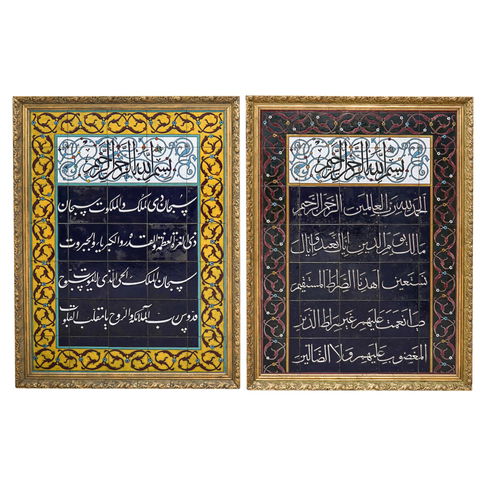 بسم الله الرحمن الرحيم
سبحان ذی الملک و الملکوت سبحان
ذی العزة العظمة و القدرة و الکبریاء و الجبروت
سبحان الملک الحی الذی لا یموت سبوح
قدوس رب الملائکة و الروح یا مقلب القلوب
بسم الله الرحمن الرحيم
الحمد لله العالمين الرحمن الرحيم
مالك يوم الدين نعبد و
نستعين اهدنا الصراط المستقيم
نعمت عليهم غير راط
المغضوب عليهم و لا الضالين